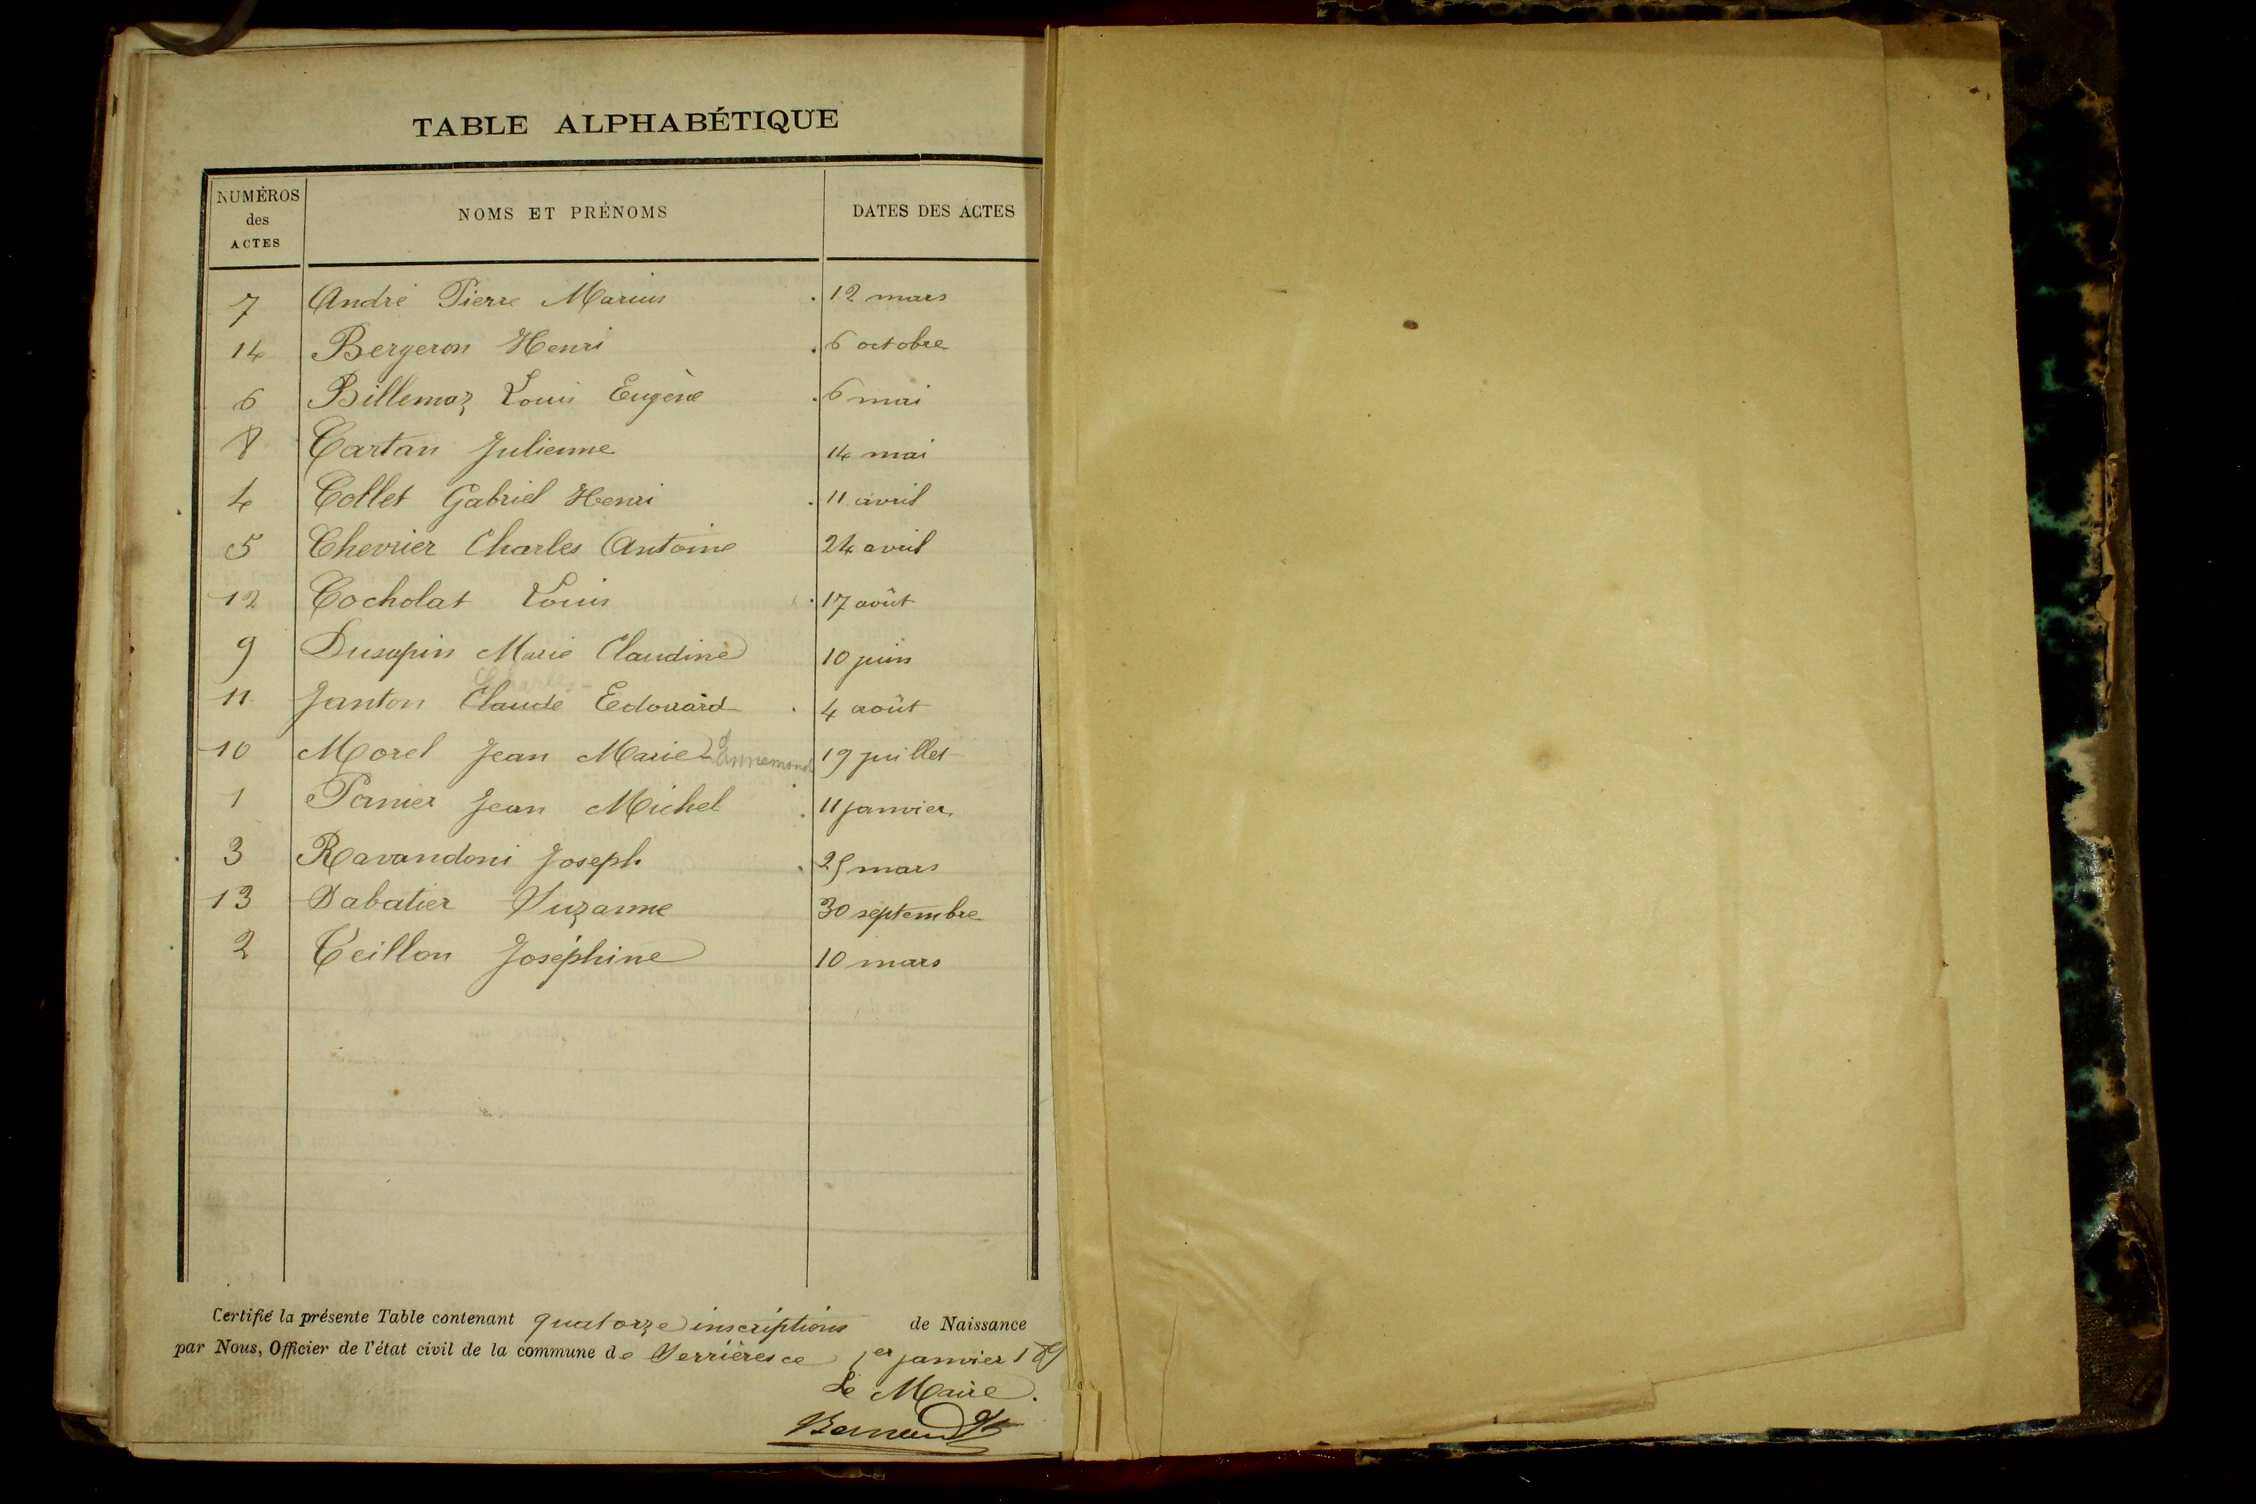 TABLE ALPHABÉTIQUE
NUMÉROS des ACTES NOMS ET PRÉNOMS DATES DES ACTES
7 André Pierre Marius 12 mars
14 Bergeron Henri 6 octobre
6 Billemaz Louis Eugène 6 mai
8 Cartan Julienne 14 mai
4 Collet Gabriel Henri 11 avril
5 Chevrier Charles Antoine 24 avril
12 Cocholat Louis 17 août
9 Dusapin Marie Claudine 10 juin
Charles
11 Janton Claude Edouard 4 août
10 Morel Jean Marie Annemond 19 juillet
1 Panier Jean Michel 11 janvier
3 Ravandoni Joseph 25 mars
13 Sabatier Suzanne 30 septembre
2 Teillon Joséphine 10 mars
Certifié la présente Table contenant quatorze inscriptions de Naissance
par Nous, Officier de l'état civil de la commune de Serrières ce 1er janvier
Le Maire.